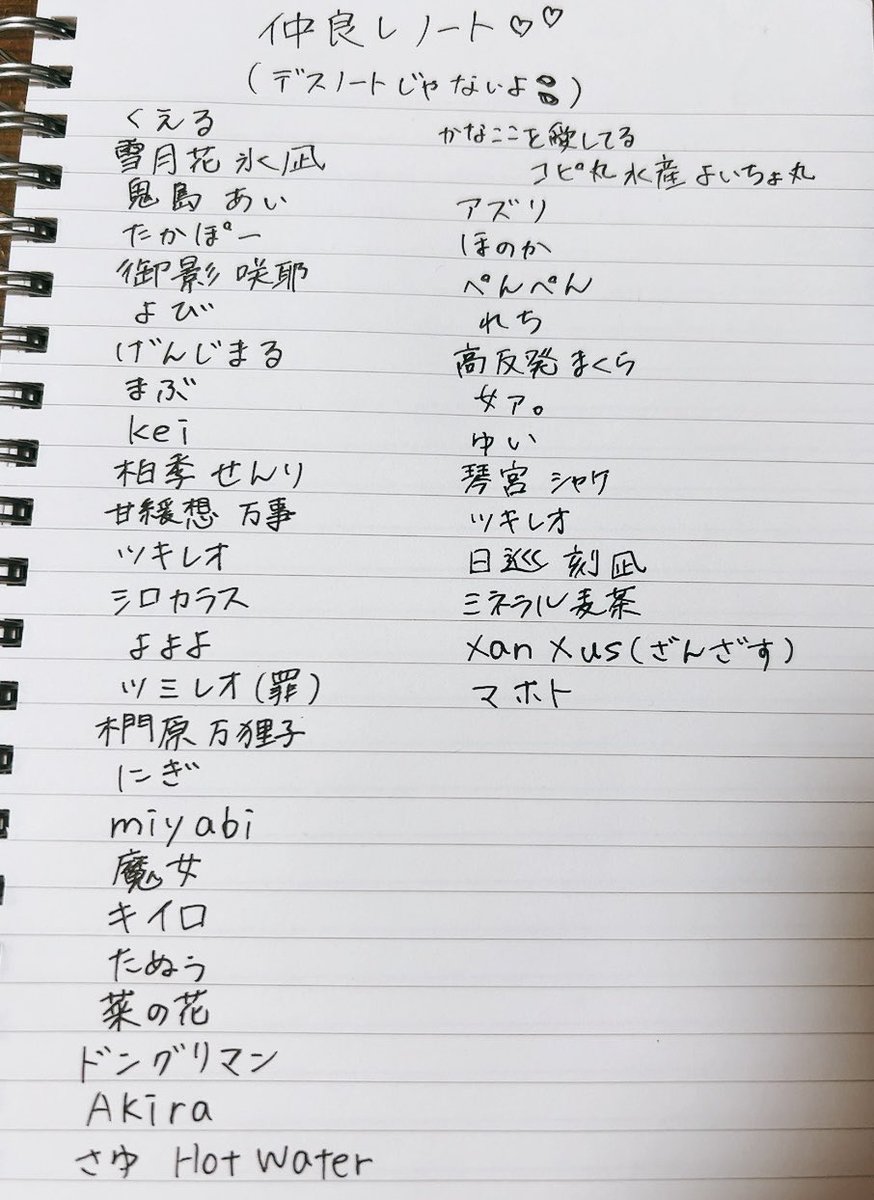 仲良しノート♡♡
(デスノートじゃないよ)
くえる
雪月花 氷凪
鬼島 あい
たかぽー
御影 咲耶
よび
げんじまる
まぶ
kei
柏季 せんり
甘緩想 万事
ツキレオ
シロカラス
よよよ
ツミレオ(罪)
原 万狸子
にぎ
miyabi
魔女
キイロ
たぬう
菜の花
ドングリマン
Akira
さゆ Hot Water
かなここを愛してる
コピ丸水産 よいちょ丸
アズリ
ほのか
ぺんぺん
れち
高反発まくら
女ア。
ゆい
琴宮 シャケ
ツキレオ
日巡 刻凪
ミネラル麦茶
XanXus(ざんざす)
マホト